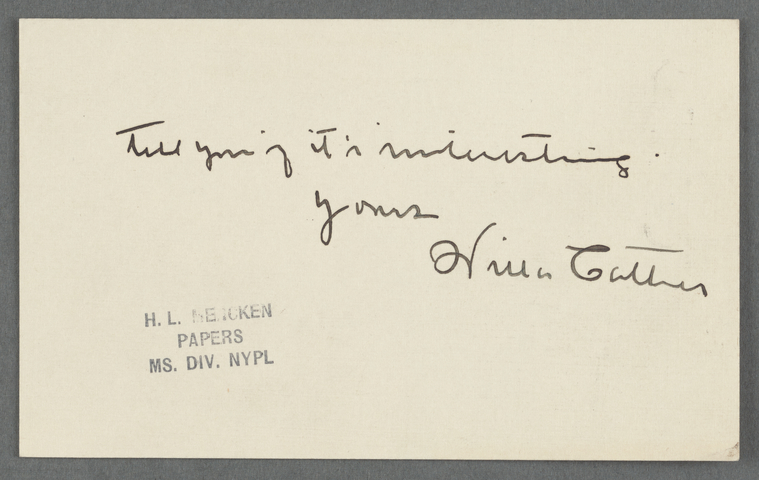 tell you if it's interesting.
Yours
Willa Cather
H. L. MENCKEN
PAPERS
MS. DIV. NYPL